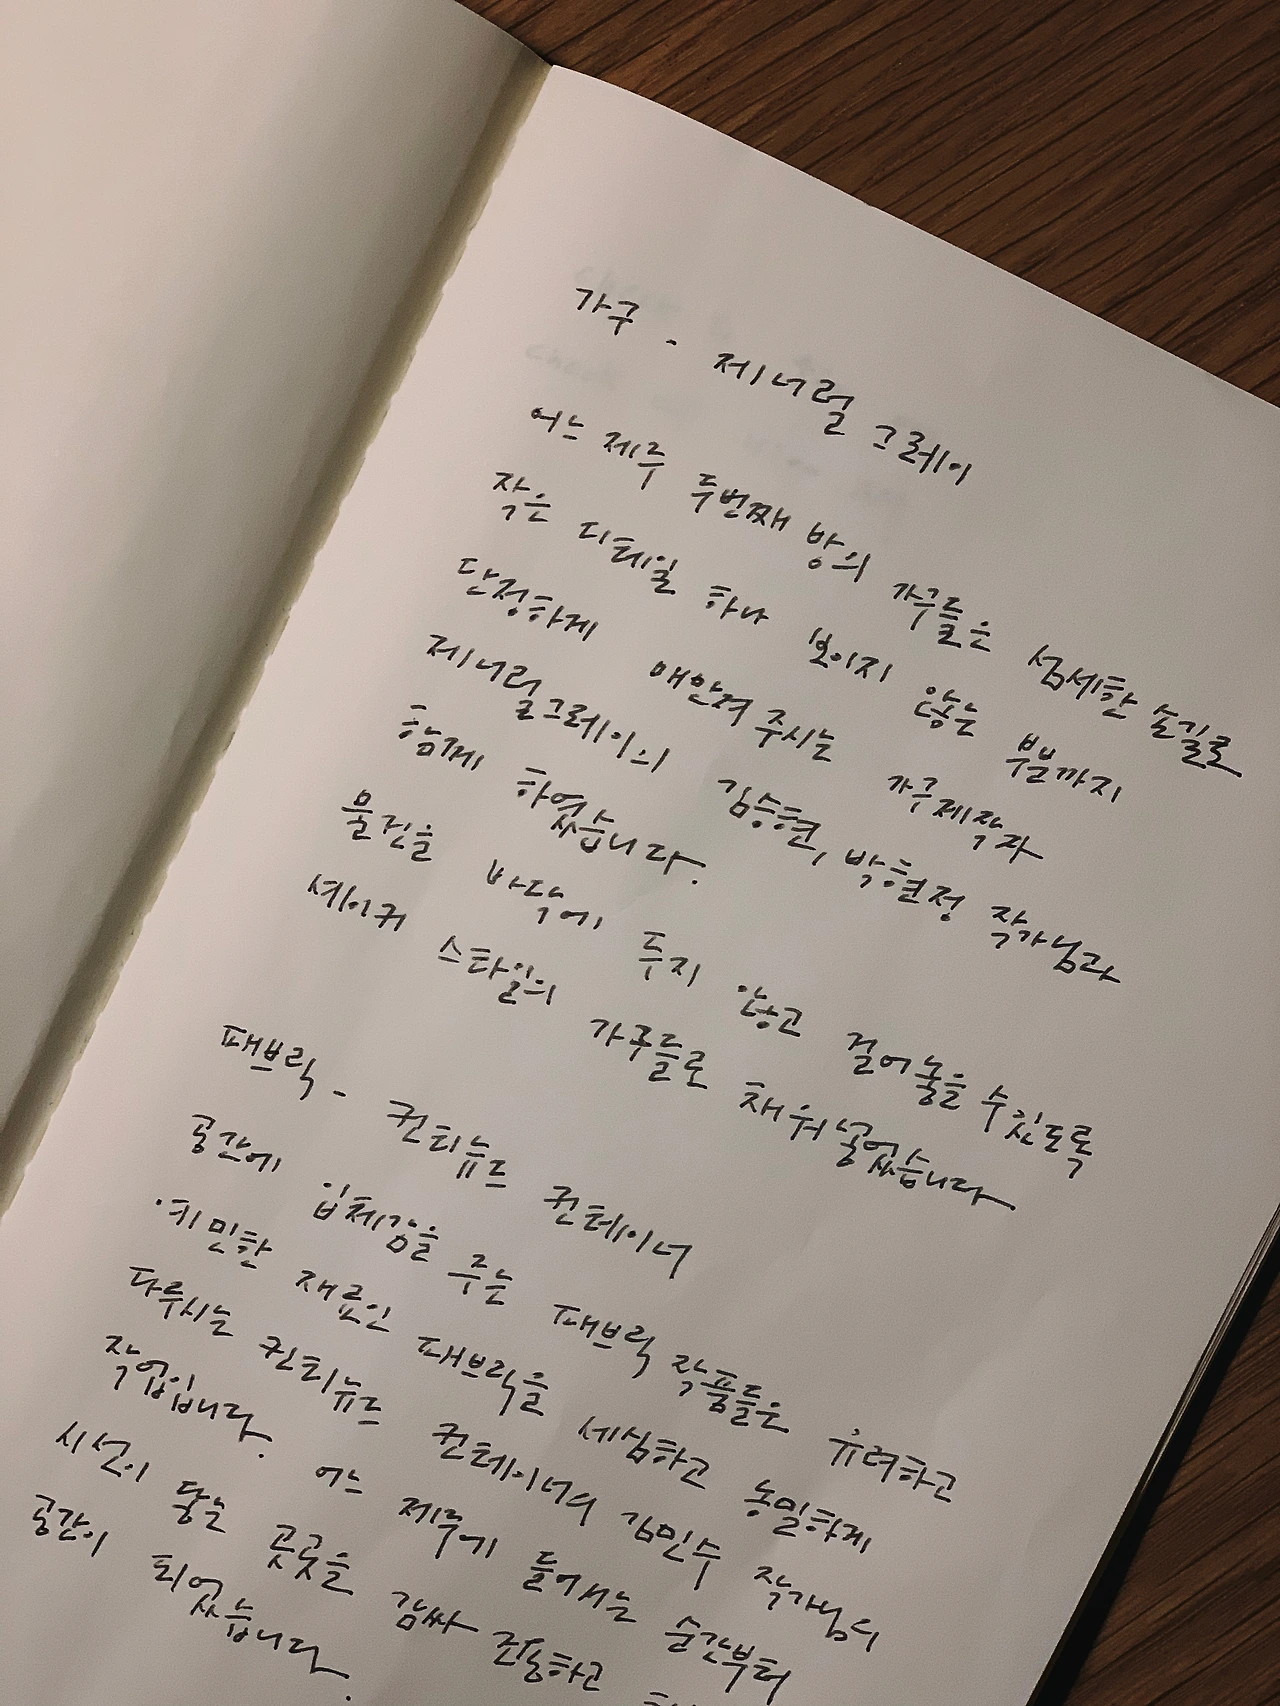 가구 - 제너럴 그레이
어느 제주 두번째 방의 가구들은 섬세한 손길로
작은 디테일 하나 보이지 않는 부분까지
단정하게 매만져 주시는 가구제작자
제너럴그레이의 김승현, 박현정 작가님과
함께 하였습니다.
물건을 바닥에 두지 않고 걸어놓을 수 있도록
셰이커 스타일의 가구들로 채워넣었습니다
패브릭 - 컨티뉴드 컨테이너
공간에 입체감을 주는 패브릭 작품들은 유려하고
예민한 재료인 패브릭을 세심하고 농밀하게
다루시는 컨티뉴드 컨테이너의 김민수 작가님의
작업입니다. 어느 제주에 들어서는 순간부터
시선이 닿는 곳곳을 감싸 전송하고
공간이 되었습니다.